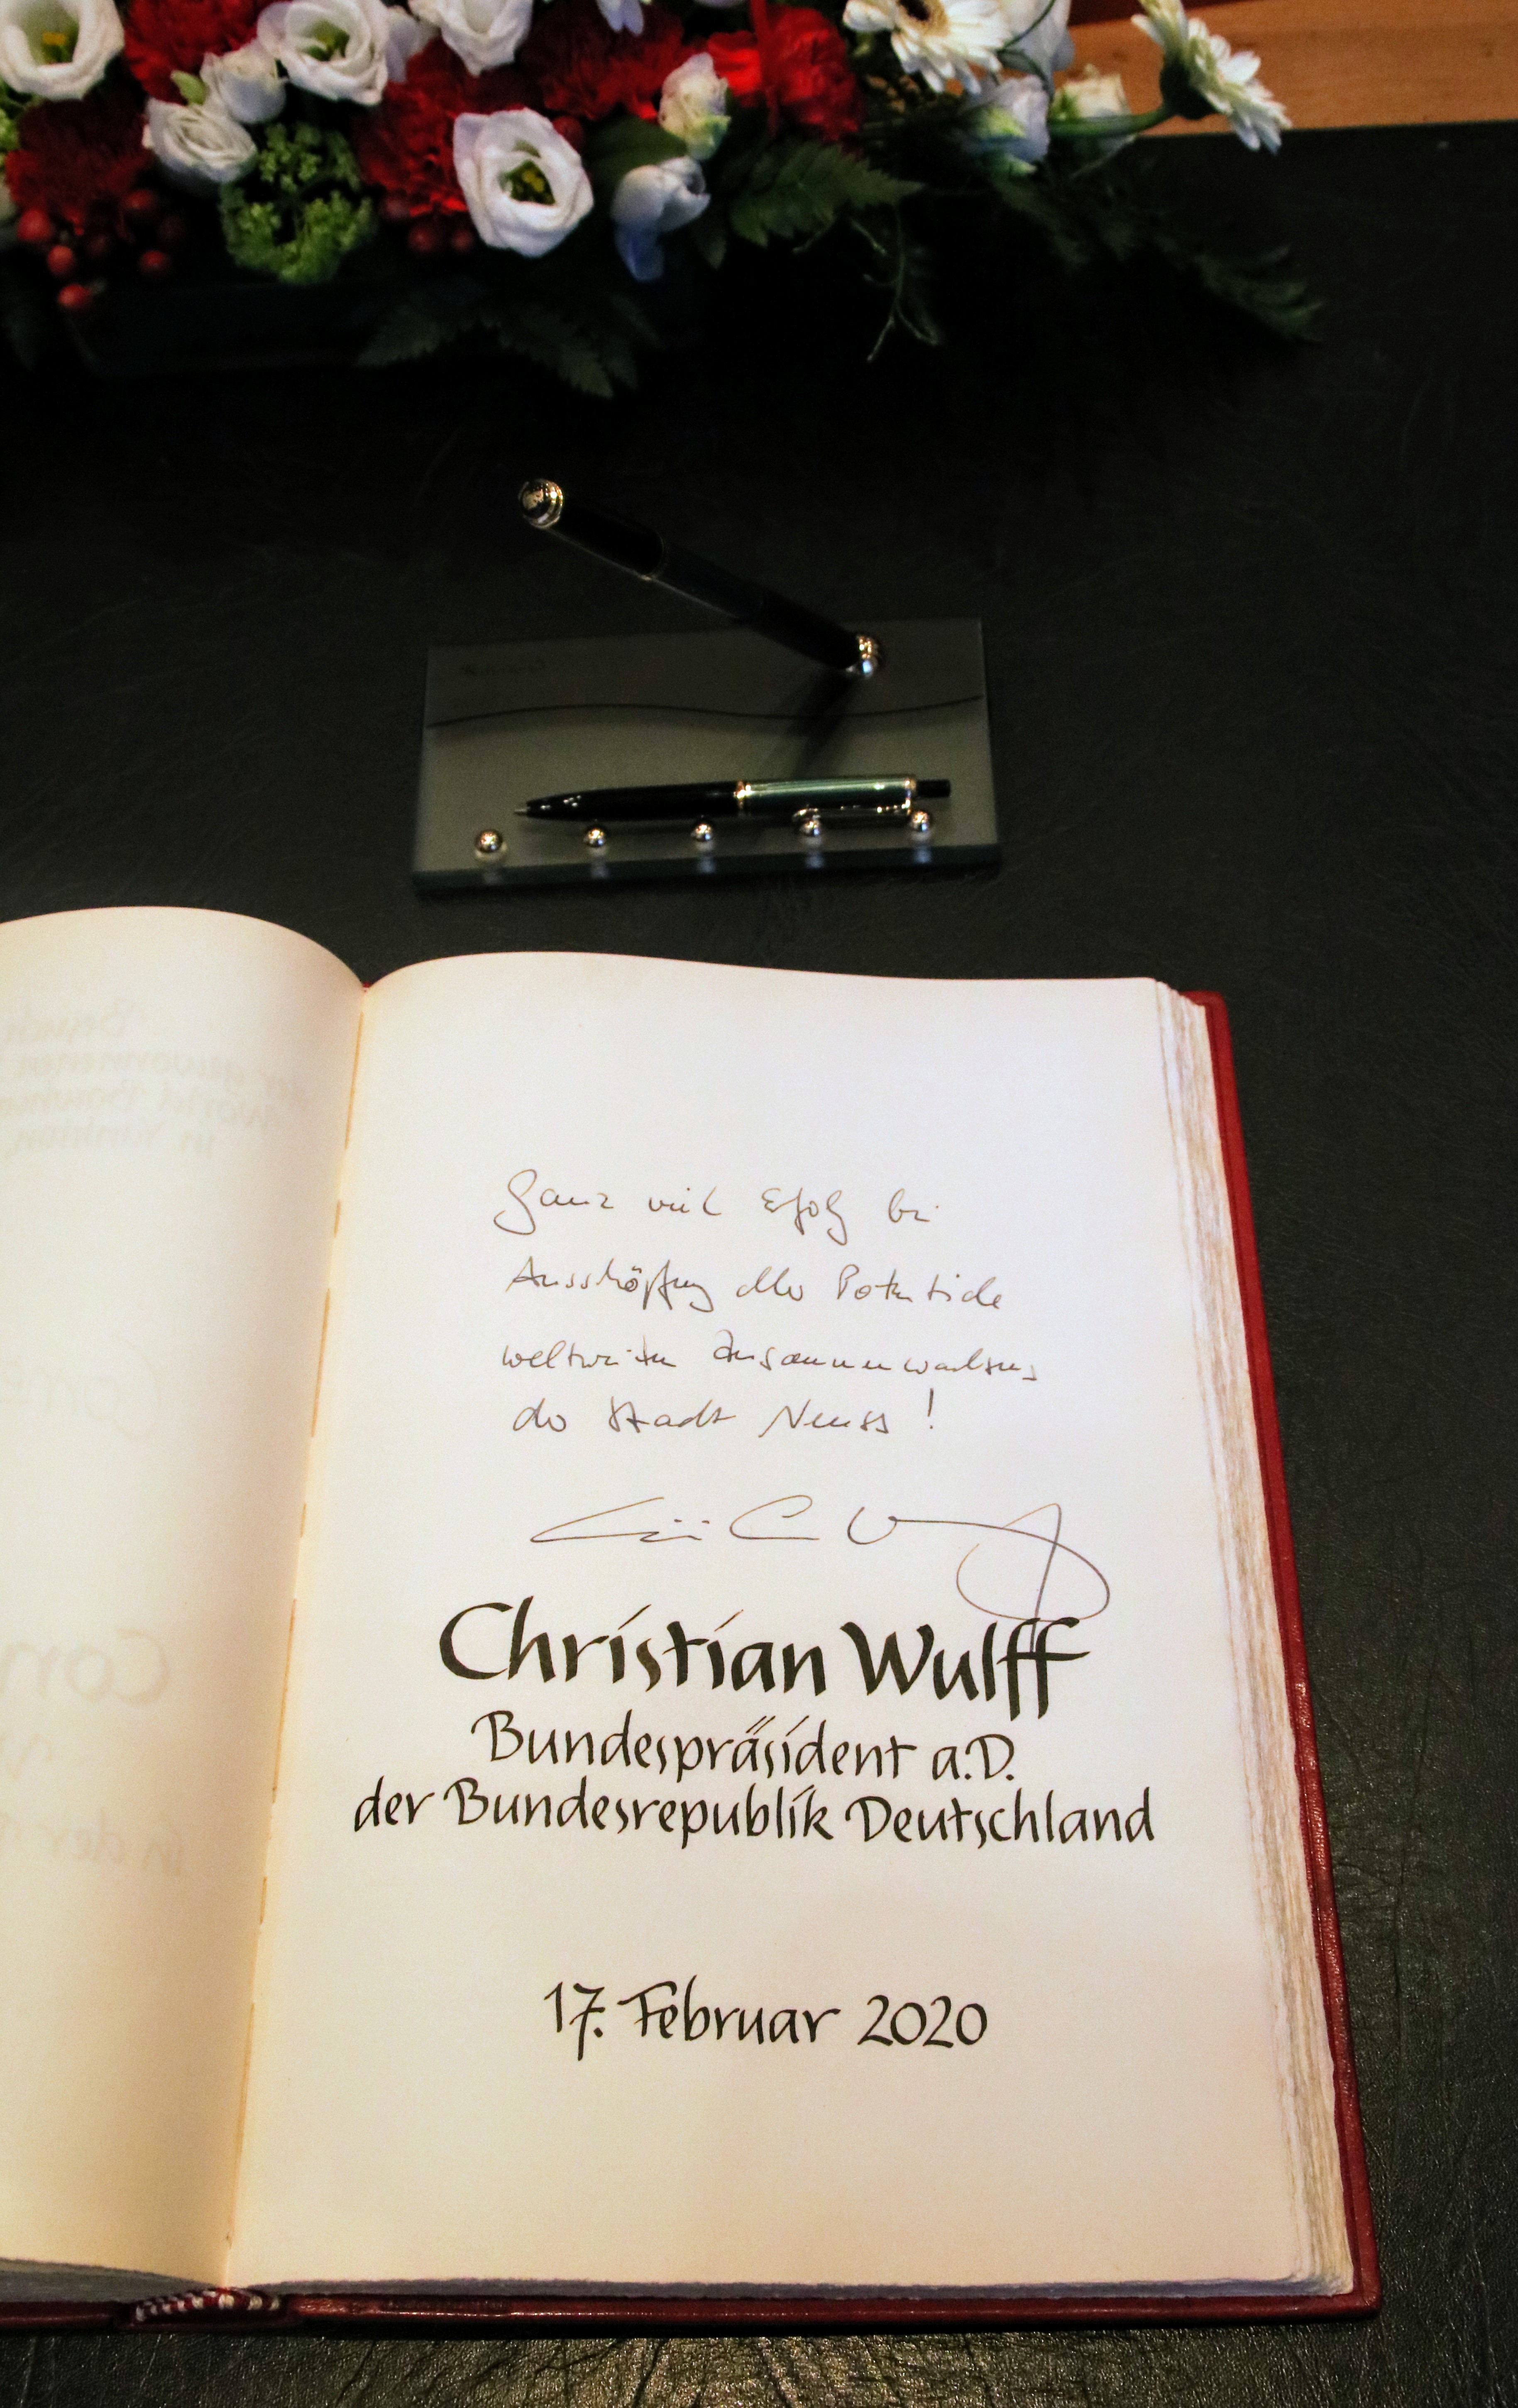 Ganz viel Erfolg bei
Ausschöpfung aller Potentiale
weltweiten Zusammenwachsens
der Stadt Neuss!
Christian Wulff
Bundespräsident a.D.
der Bundesrepublik Deutschland
17. Februar 2020